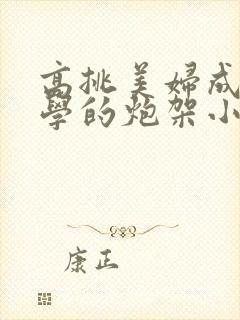 高挑美婦成
學的炮架小
康正